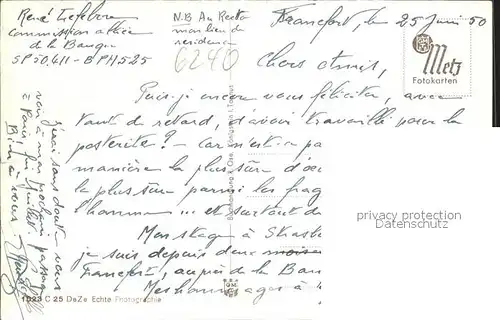 René Lefebvre
Commission alliée
de la Banque
SP 50.411 - BPM 525
N.B Au Recto
mon lieu de
residence
6240
Francfort, le 25 Juin 50
Metz
Fotokarten
Chers amis,
Puis-je encore vous féliciter, avec
tant de retard, d'avoir travaillé pour la
posterité? - Car n'est-ce pa
manière la plus sûre d'
la plus sûre parmi les frag
l'homme ... et surtout d
Mon stage à Strasb
je suis depuis deux mois
Francfort, auprès de la Ban
Mes hommages à
J'irai sans doute vous
voir à mon prochain passage
à Paris, fin Juillet
Bien à vous.
privacy protection
www.oldthing.com
1023 C 25 DeZe Echte Photographie